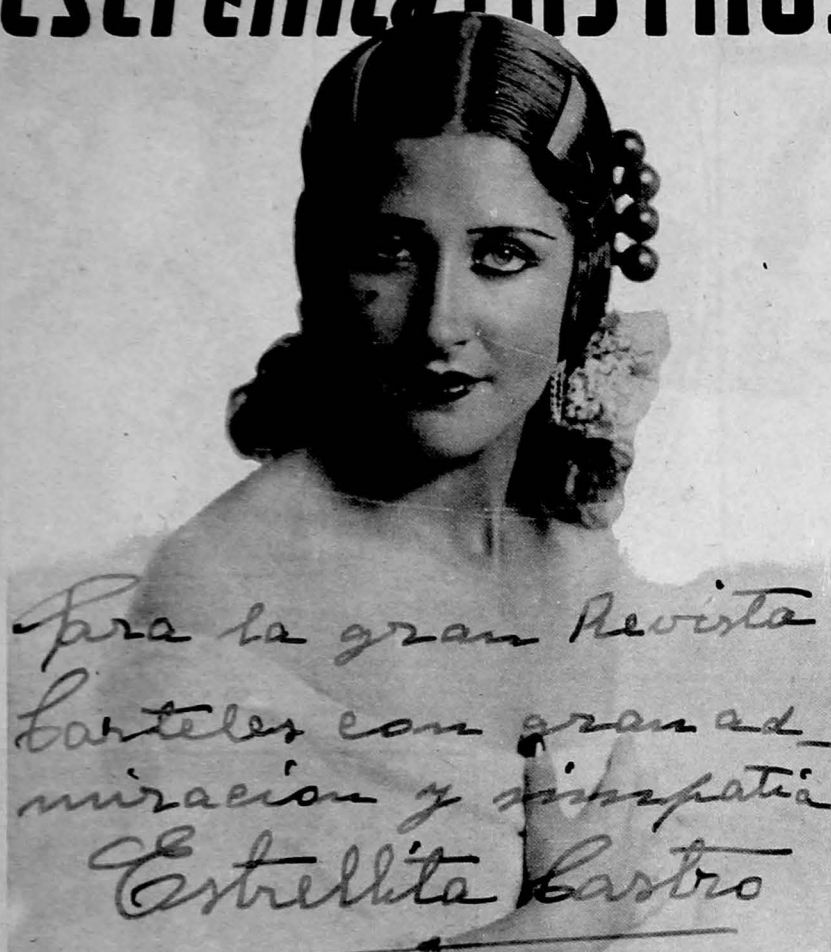 Estrellita CASTRO.
Para la gran Revista
Carteles con gran ad_
miración y simpatía
Estrellita Castro